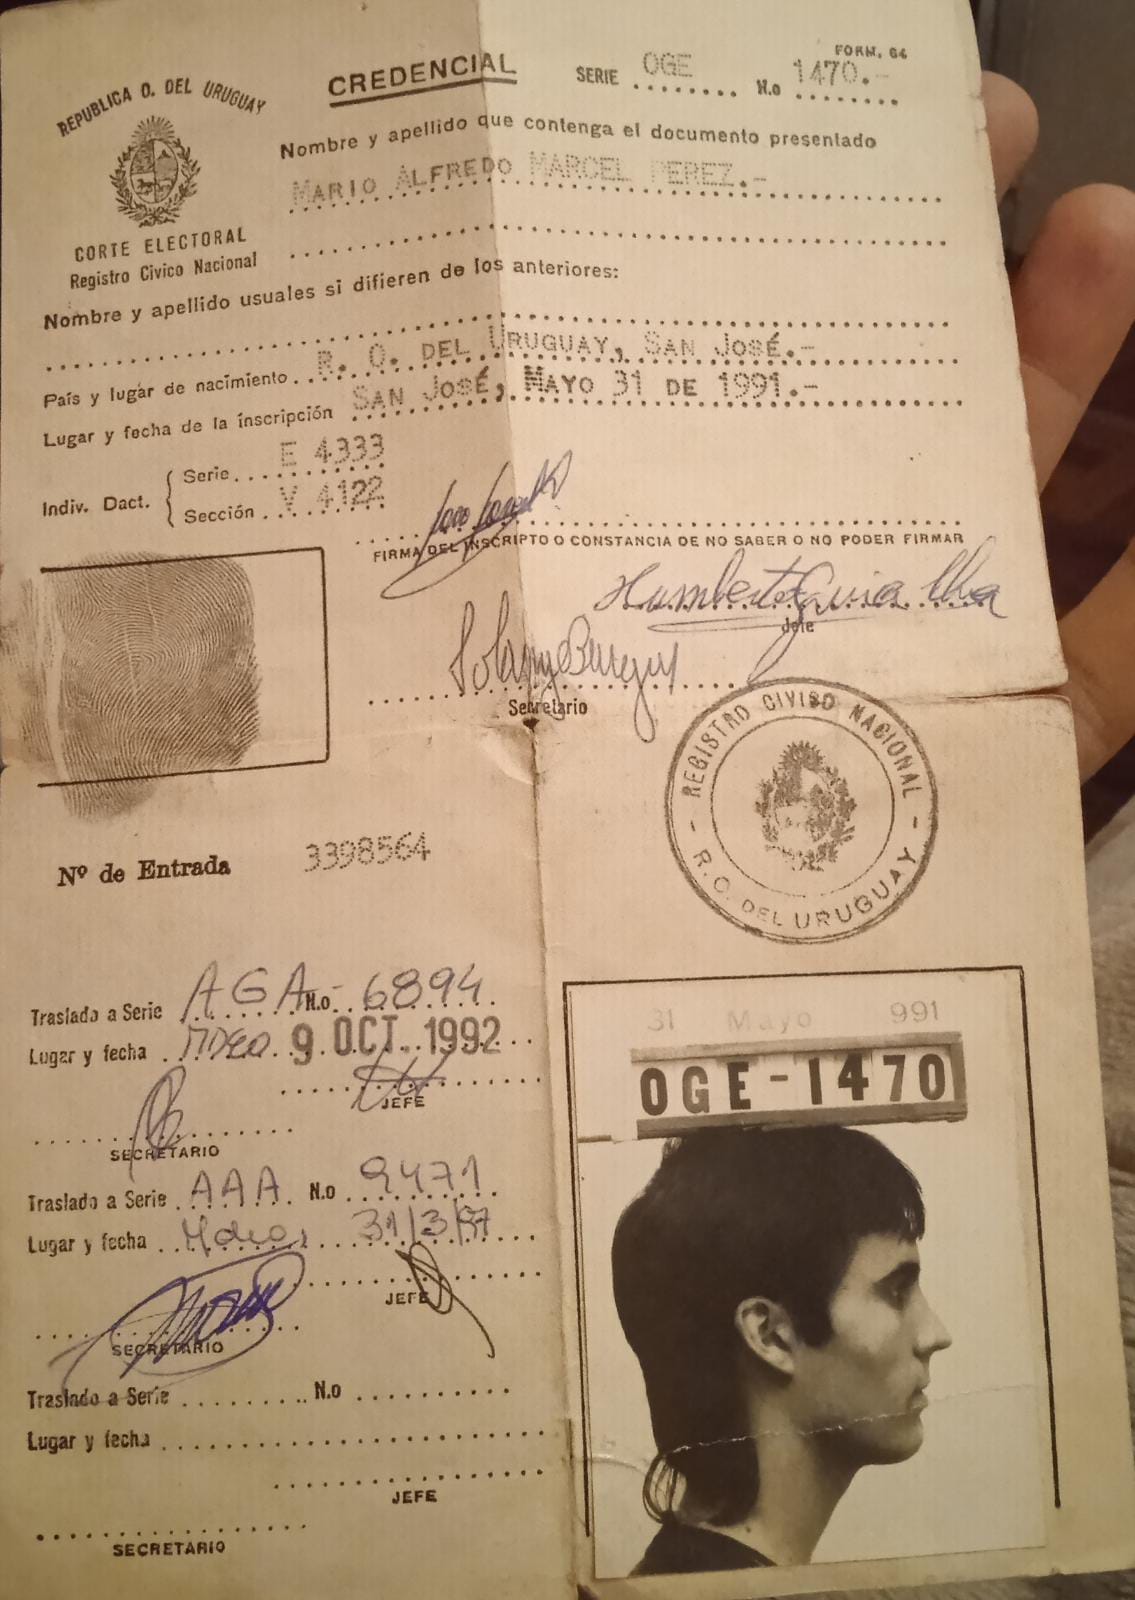 FORM. 64
CREDENCIAL
SERIE OGE N.o 1470.-
REPUBLICA O. DEL URUGUAY
CORTE ELECTORAL
Registro Civico Nacional
Nombre y apellido que contenga el documento presentado
MARIO ALFREDO MARCEL PEREZ.-
Nombre y apellido usuales si difieren de los anteriores:
País y lugar de nacimiento R. O. DEL URUGUAY, SAN JOSÉ.-
Lugar y fecha de la inscripción SAN JOSÉ, MAYO 31 DE 1991.-
Indiv. Dact.
Serie E 4333
Sección V 4122
FIRMA DEL INSCRIPTO O CONSTANCIA DE NO SABER O NO PODER FIRMAR
Jefe
Secretario
REGISTRO CIVICO NACIONAL
R. O. DEL URUGUAY
Nº de Entrada 3398564
Traslado a Serie AGA N.o 6894
Lugar y fecha MDEO. 9 OCT. 1992
JEFE
SECRETARIO
Traslado a Serie AAA N.o 9471
Lugar y fecha 31/3/97
JEFE
SECRETARIO
Traslado a Serie N.o
Lugar y fecha
JEFE
SECRETARIO
31 Mayo 991
OGE-1470